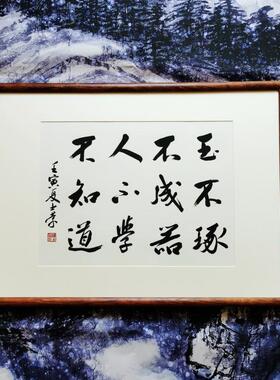 玉不琢
不成器
人不学
不知道
壬寅夏士荣